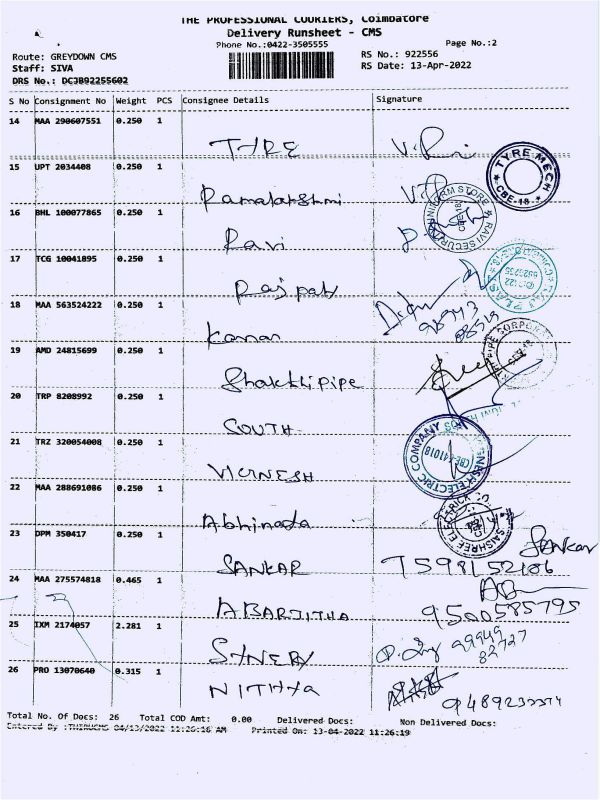 THE PROFESSIONAL COURIERS, Coimbatore
Delivery Runsheet - CMS
Phone No.:0422-3505555
Page No.:2
Route: GREYDOWN CMS
RS No.: 922556
Staff: SIVA
RS Date: 13-Apr-2022
DRS No.: DCJB92255602
S No Consignment No Weight PCS Consignee Details Signature
14 MAA 290607551 0.250 1
TYRE
TYRE MECH
CBE-18
15 UPT 2034408 0.250 1
Ramalakshmi
UNIFORM STORE
RAVI SECURITY
16 BHL 100077865 0.250 1
Ravi
17 TCG 10041895 0.250 1
Rajpat
18 MAA 563524222 0.250 1
Kannan
19 AMD 24815699 0.250 1
Shakthipipe
20 TRP 8208992 0.250 1
SOUTH
21 TRZ 320054008 0.250 1
VIGNESH
ELECTRIC COMPANY
22 MAA 288691086 0.250 1
Abhinada
SAISHREE
23 DPM 350417 0.250 1
SANKAR
Sankar
7598152186
24 MAA 275574818 0.465 1
ABARJITHA
9500585795
25 IXM 2174057 2.281 1
SYNERY
99949
82727
26 PRO 13070640 0.315 1
NITHYA
Total No. Of Docs: 26 Total COD Amt: 0.00 Delivered Docs: Non Delivered Docs:
Entered By :THIRUCMS 04/13/2022 11:26:16 AM Printed On: 13-04-2022 11:26:19